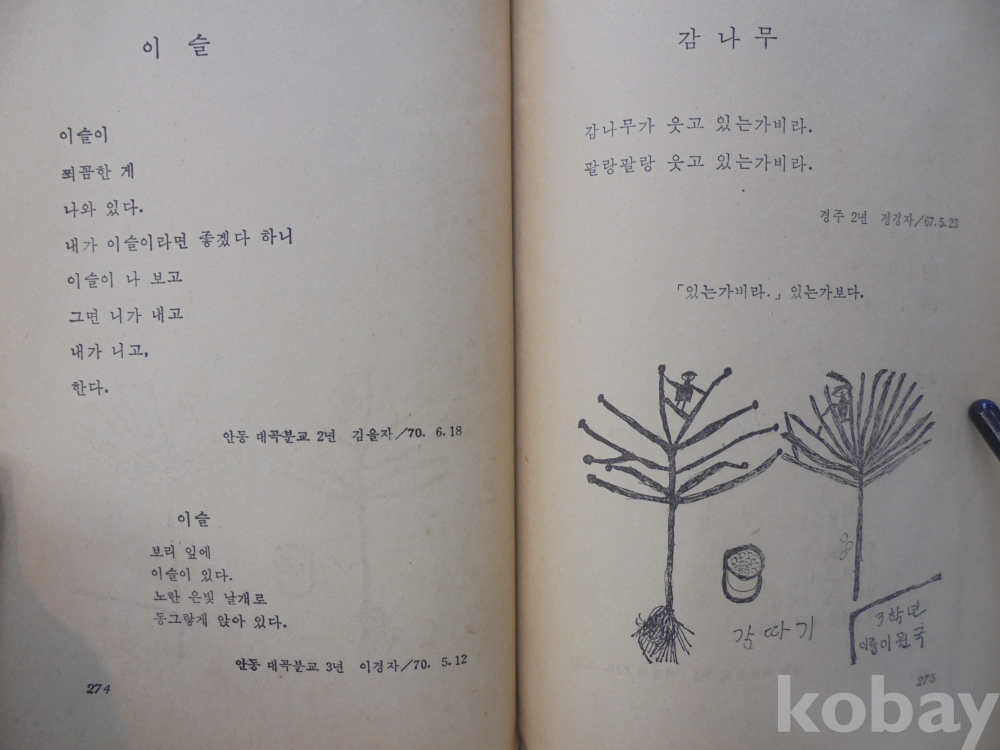 이 슬
이슬이
쬐꼼한 게
나와 있다.
내가 이슬이라면 좋겠다 하니
이슬이 나 보고
그면 니가 내고
내가 니고,
한다.
안동 대곡분교 2년 김을자/70. 6.18
이슬
보리 잎에
이슬이 있다.
노란 은빛 날개로
동그랗게 앉아 있다.
안동 대곡분교 3년 이경자/70. 5.12
274
감 나 무
감나무가 웃고 있는가비라.
팔랑팔랑 웃고 있는가비라.
경주 2년 정경자/67.5.23
「있는가비라.」있는가보다.
감따기
3학년
이름이원국
275
kobay